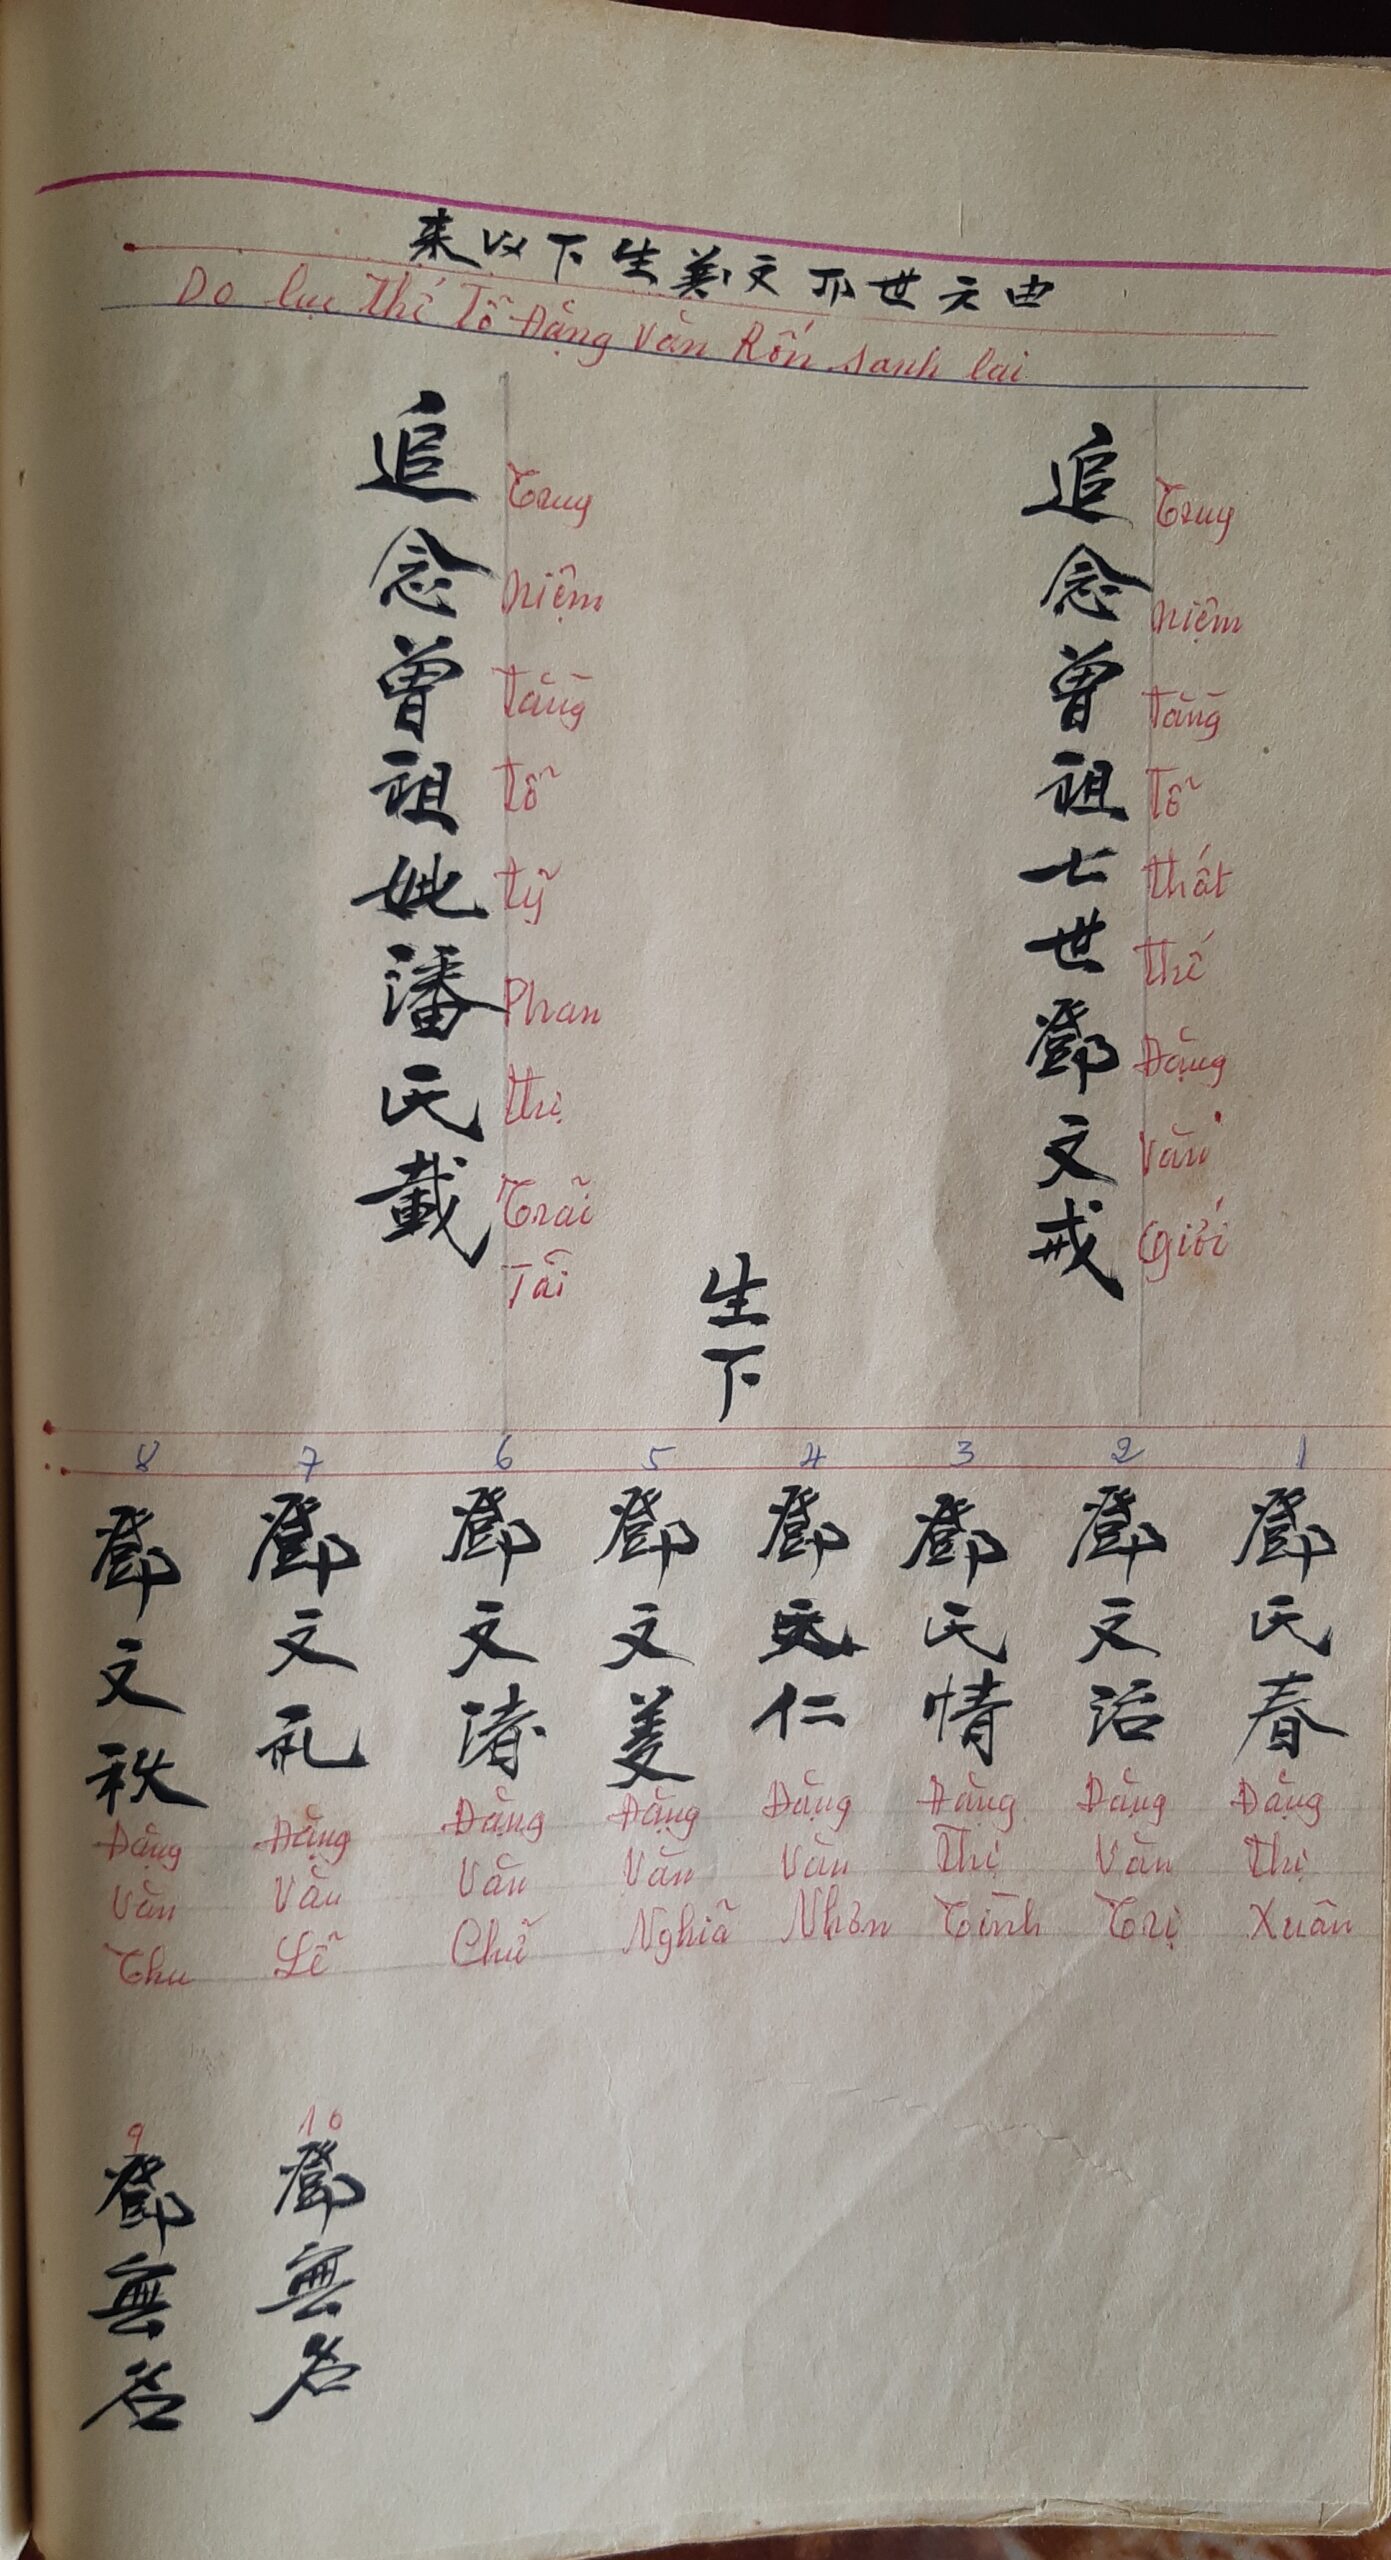 由六世祖文義生下以來
Do lục thế Tổ Đặng Văn Rốn sanh lai
追念曾祖七世鄧文戒
Truy niệm tằng tổ thất thế Đặng Văn Giới
追念曾祖妣潘氏載
Truy niệm tằng tổ tỷ Phan thị Trãi Tãi
生下
1
鄧氏春
Đặng Thị Xuân
2
鄧文治
Đặng Văn Trị
3
鄧氏情
Đặng Thị Tình
4
鄧文仁
Đặng Văn Nhơn
5
鄧文義
Đặng Văn Nghĩa
6
鄧文渚
Đặng Văn Chữ
7
鄧文礼
Đặng Văn Lễ
8
鄧文秋
Đặng Văn Thu
9
鄧無名
10
鄧無名